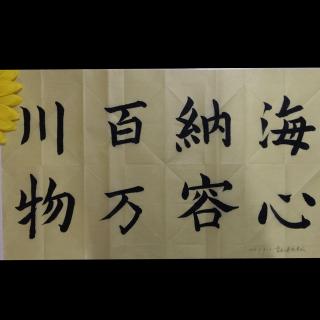 海納百川
心容万物